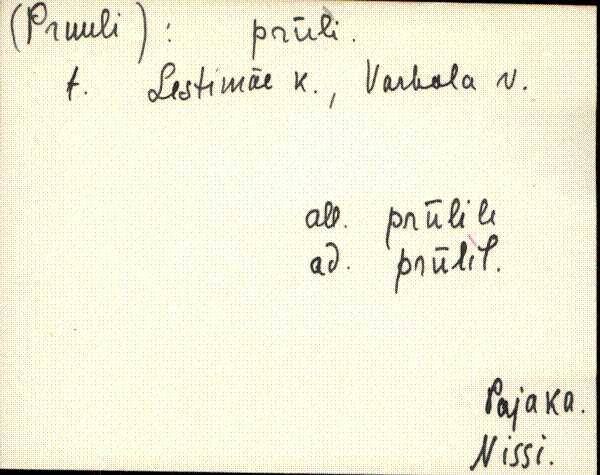 (Pruuli): prūli.
t. Lestimäe k., Varbola v.
all. prūlile
ad. prūlil.
Pajaka.
Nissi.